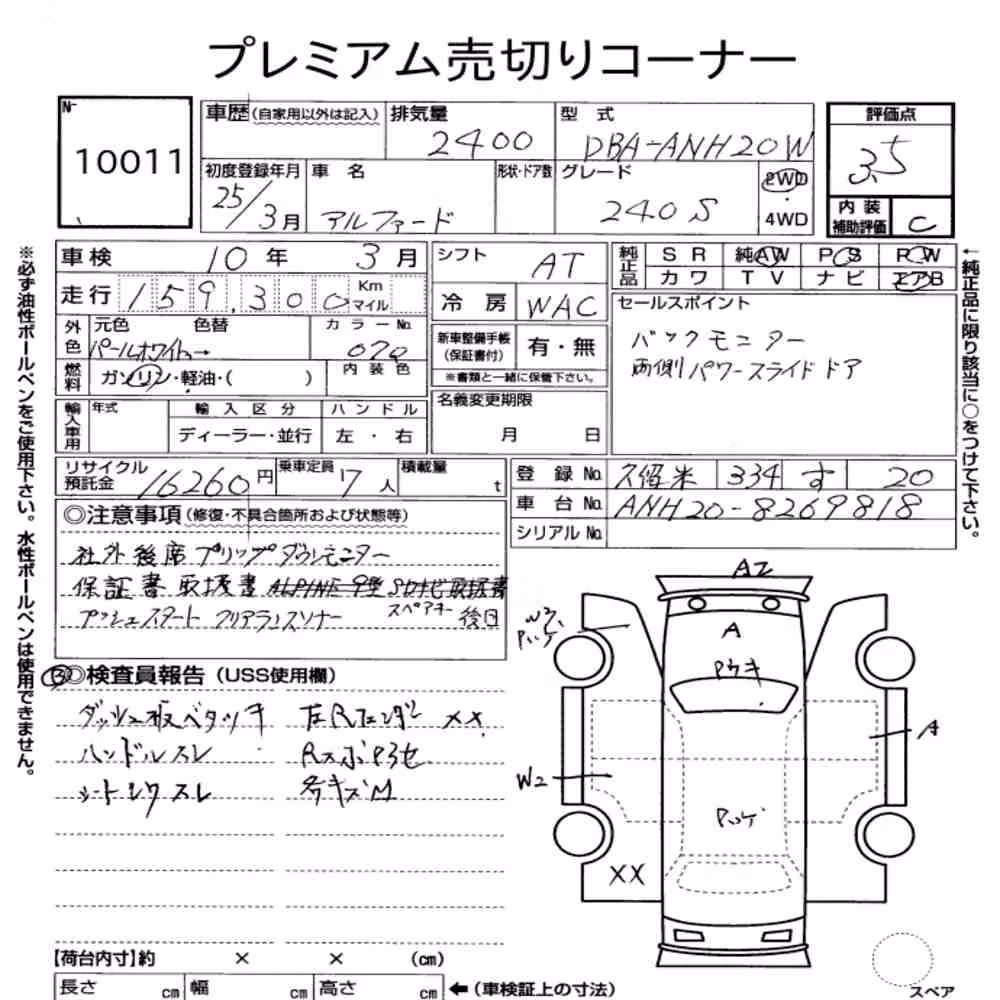 プレミアム売切りコーナー
№
10011
車歴(自家用以外は記入)
排気量
2400
型式
DBA-ANH20W
評価点
3.5
初度登録年月
25/3月
車名
アルファード
形状・ドア数
グレード
240S
2WD
4WD
内装
補助評価
C
車検 10年 3月
シフト
AT
純正品
SR 純AW PS PW
カワ TV ナビ エアB
走行 159,300 Km
マイル
冷房
WAC
セールスポイント
バックモニター
両側パワースライドドア
外色
元色 色替
パールホワイト→
カラーNo.
070
新車整備手帳
(保証書付)
有・無
※書類と一緒に保管下さい。
燃料
ガソリン・軽油・( )
内装色
輸入車用
年式
輸入区分
ディーラー・並行
ハンドル
左・右
名義変更期限
月 日
リサイクル
預託金
16260円
乗車定員
7人
積載量
t
登録No. 久留米 334 す 20
車台No. ANH20-8269818
シリアルNo.
◎注意事項(修復・不具合箇所および状態等)
社外後席フリップダウンモニター
保証書 取扱書 ALPINE 9型 SDナビ取扱書
プッシュスタート クリアランスソナー スペアキー 後日
③◎検査員報告(USS使用欄)
ダッシュ板ベタツキ 左Rフェンダー XX
ハンドルスレ
シートシワスレ 各キズM
※必ず油性ボールペンをご使用下さい。水性ボールペンは使用できません。
←純正品に限り該当に○をつけて下さい。
A2
W3
A
Pウキ
A
W2
XX
【荷台内寸】約 × × (cm)
長さ cm 幅 cm 高さ cm ←(車検証上の寸法)
スペア